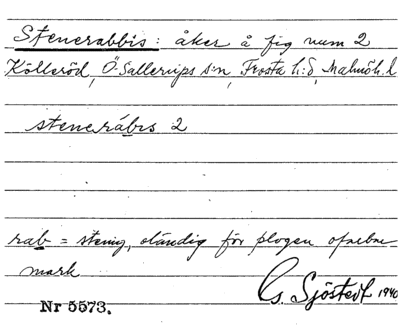 Stenerabbis: åker å fig num 2
Kölleröd, Ö. Sallerups s:n, Frosta h:d, Malmöh. l
stenerábis 2
rab = stenig, oländig för plogen ofarbar
mark
Gs. Sjöstedt 1940
Nr 5573.